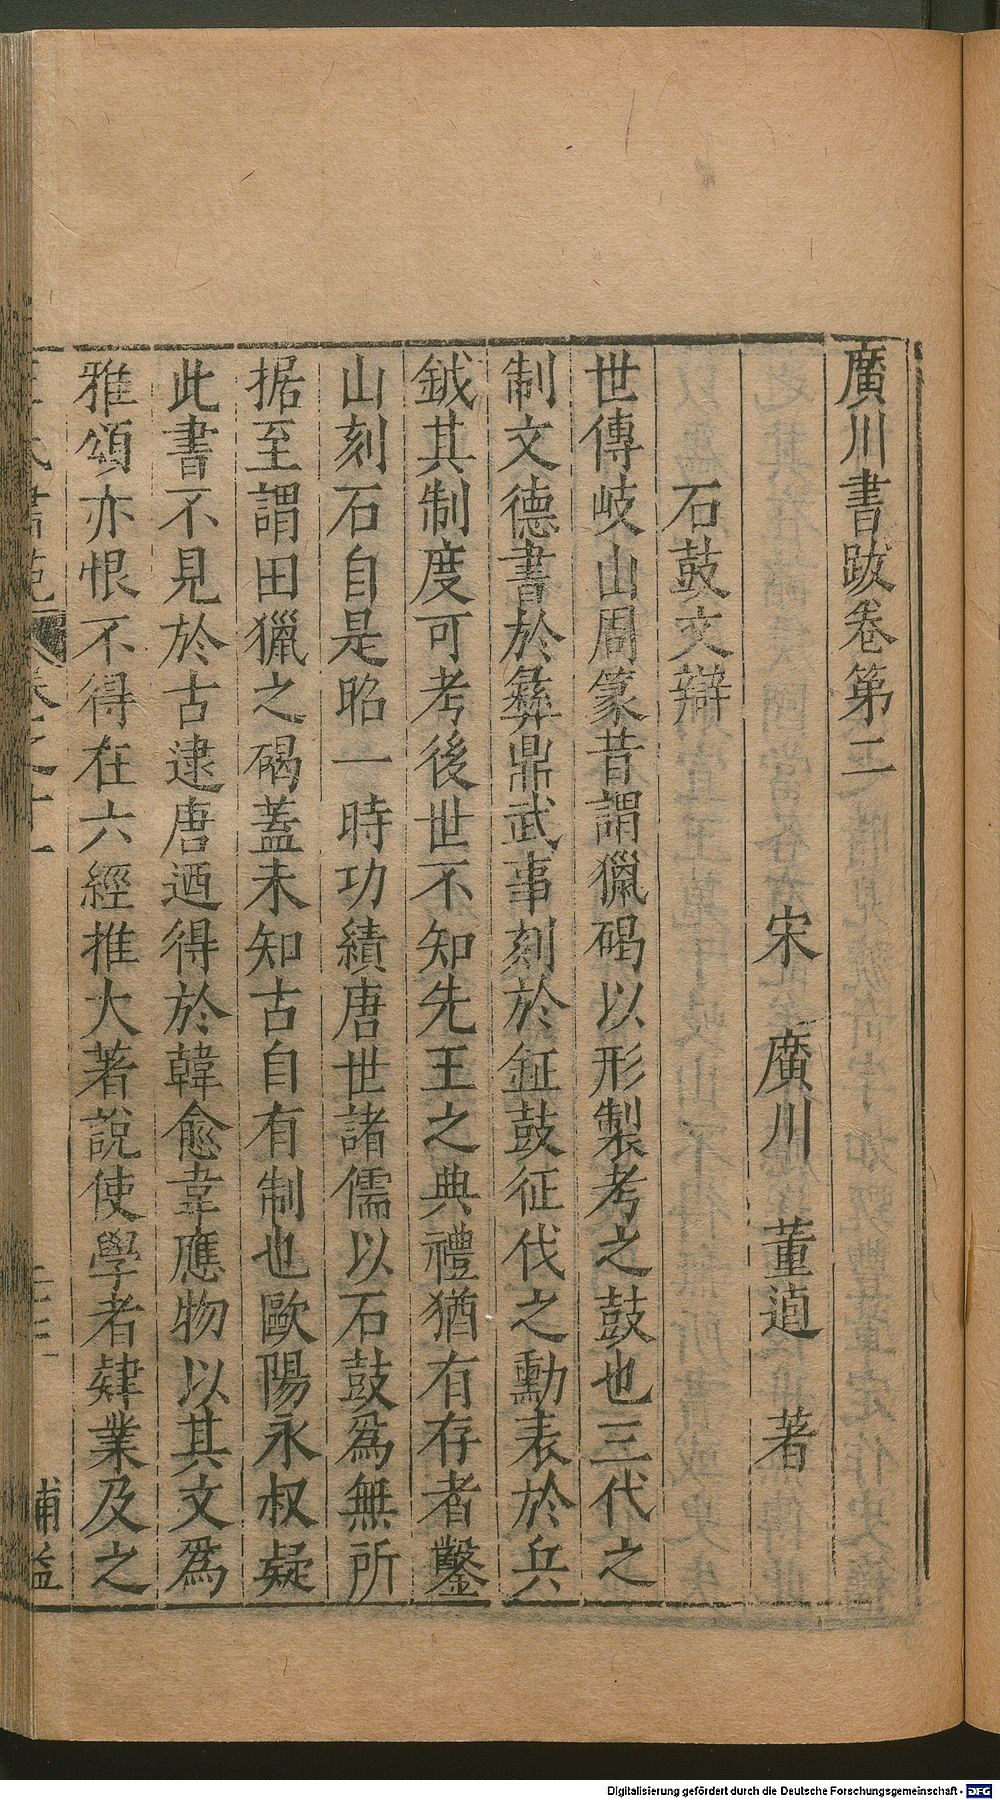 廣川書跋卷第二
宋 廣川 董逌 著
石鼓文辯
世傳岐山周篆昔謂獵碣以形製考之鼓也三代之
制文德書於彝鼎武事刻於鉦鼓征伐之勳表於兵
鉞其制度可考後世不知先王之典禮猶有存者鑿
山刻石自是昭一時功績唐世諸儒以石鼓爲無所
据至謂田獵之碣蓋未知古自有制也歐陽永叔疑
此書不見於古逮唐迺得於韓愈韋應物以其文爲
雅頌亦恨不得在六經推大著說使學者肄業及之
氏書苑 卷之十一
Digitalisierung gefördert durch die Deutsche Forschungsgemeinschaft - DFG